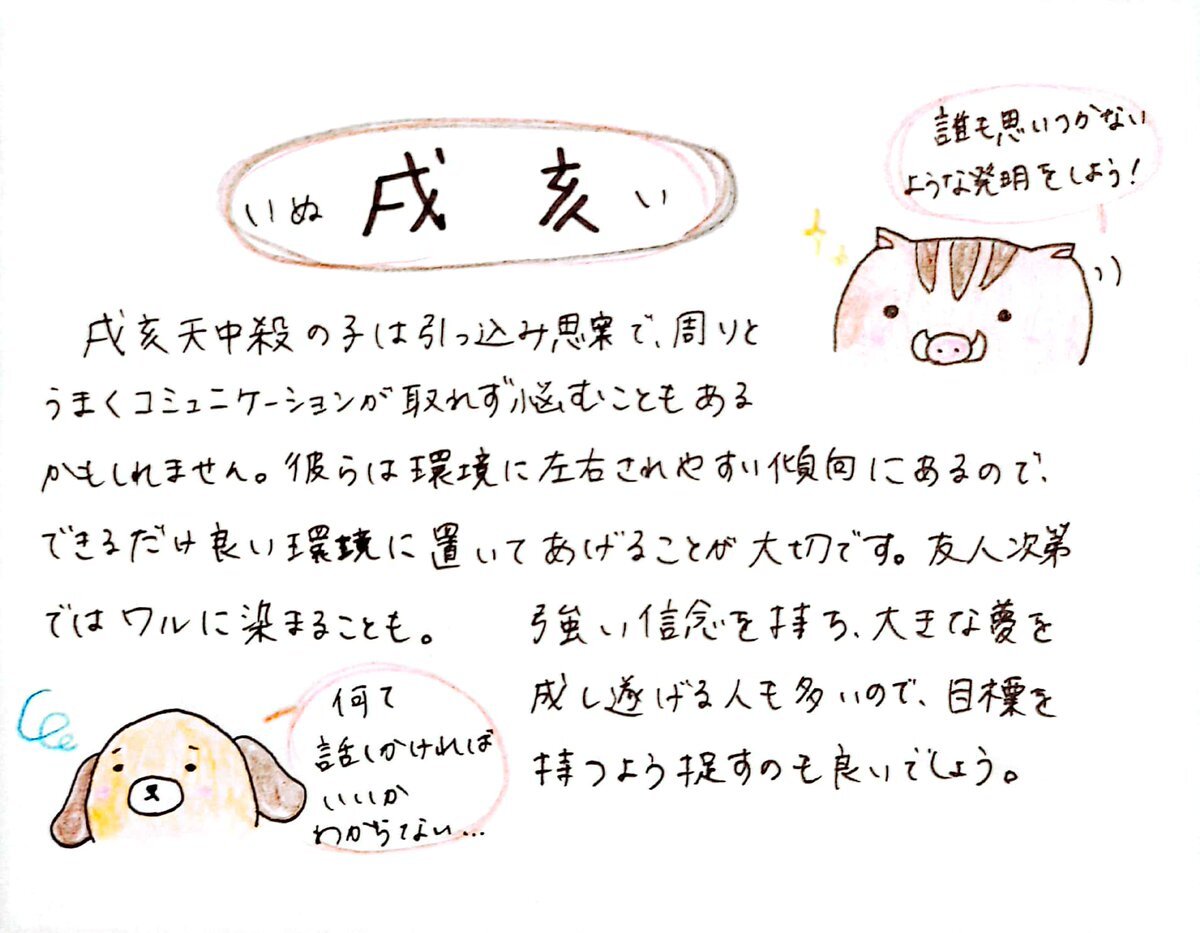 いぬ 戌 亥 い
誰も思いつかない
ような発明をしよう!
戌亥天中殺の子は引っ込み思案で、周りと
うまくコミュニケーションが取れず悩むこともある
かもしれません。彼らは環境に左右されやすい傾向にあるので、
できるだけ良い環境に置いてあげることが大切です。友人次第
ではワルに染まることも。
強い信念を持ち、大きな夢を
成し遂げる人も多いので、目標を
持つよう促すのも良いでしょう。
何て
話しかければ
いいか
わからない...